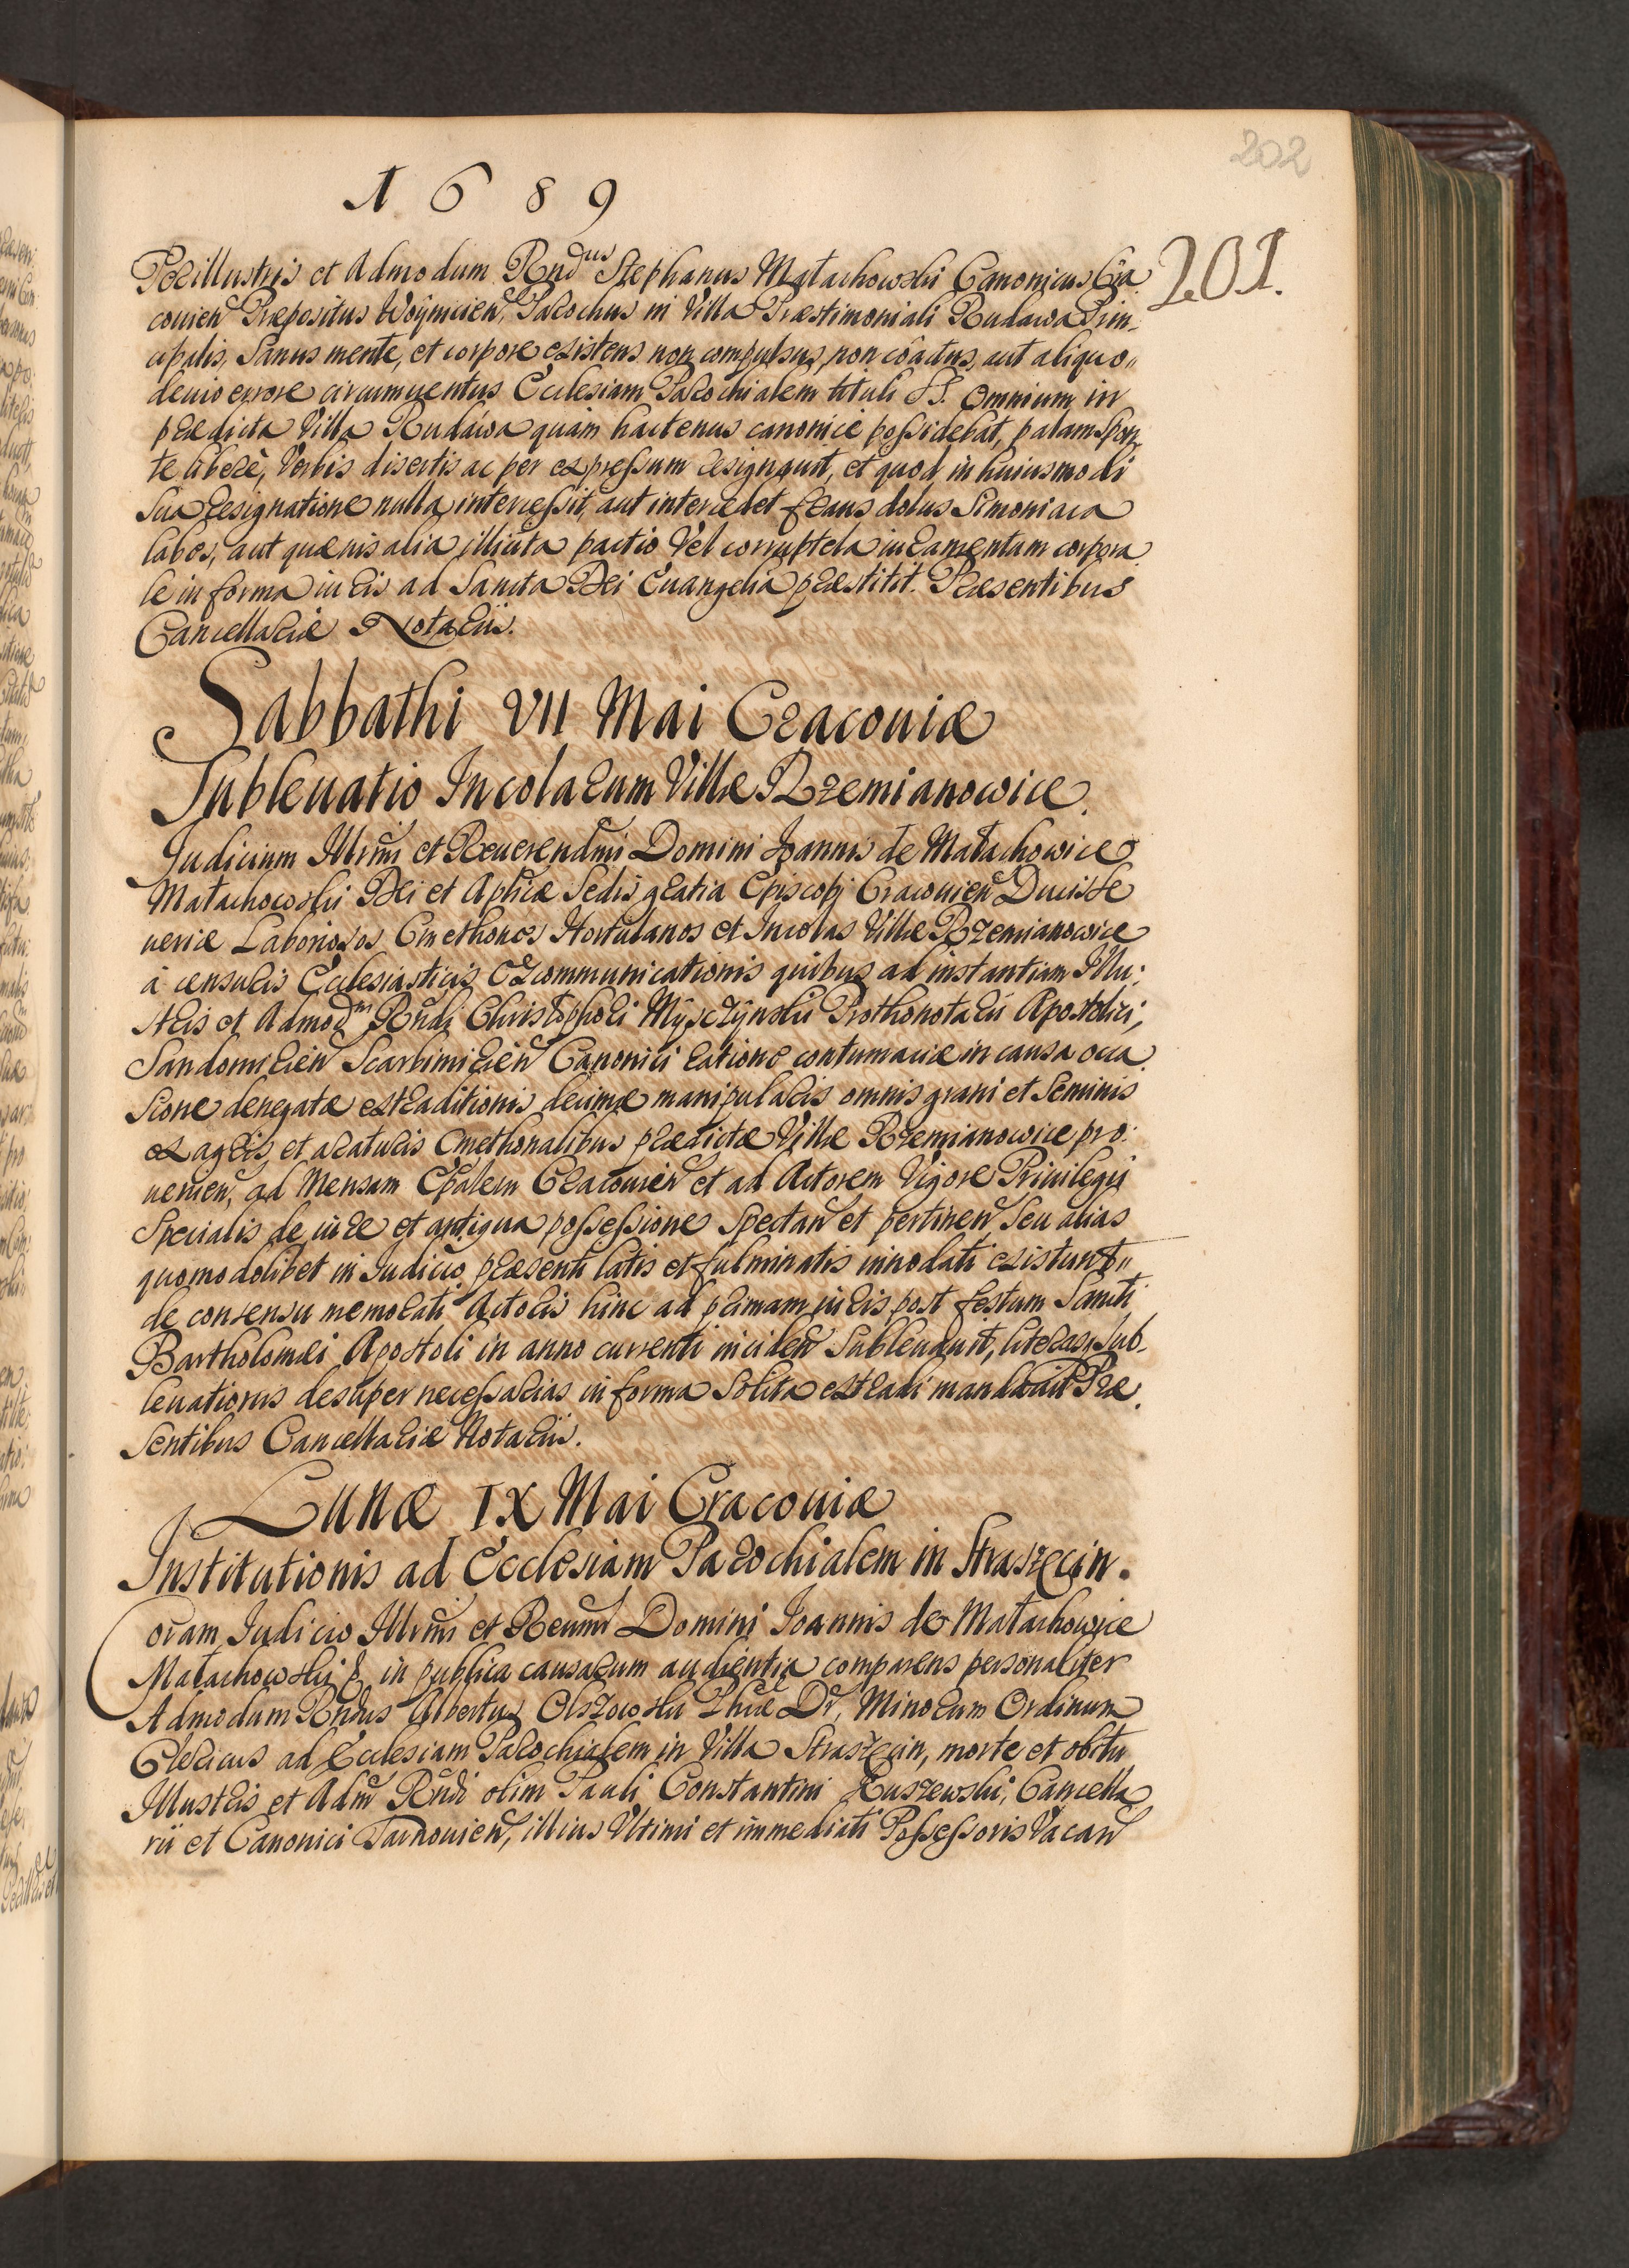 202
1689
201.
Perillustris et Admodum Rndus Stephanus Małachowski Canonicus Cra
couien Præpositus Woÿnicien, Parochus in Villa Præstimoniali Rudawa Prin-
cipalis, Sanus mente, et corpore existens non compulsus, non coactus, aut aliquo
deuio errore circumuentus Ecclesiam Parochialem tituli SS. Omnium in
prædicta Villa Rudawa quam hactenus canonice possidebat, palam spon
te liberè, Verbis disertis ac per expressum resignauit, et quod in huiusmodi
sua resignatione nulla intercessit, aut intercedet fraus dolus Simoniaca
labes, aut quæuis alia illicita pactio Vel corruptela iuramentum corpora
le in forma iuris ad Sancta Dei Euangelia præstitit. Præsentibus
Cancellariæ Notariis.
Sabbathi VII Mai Cracouiæ
Subleuatio Incolarum Villæ Rzemianowice.
Judicium Illrmi et Reuerendmi Domini Joannis de Małachowice
Małachowski Dei et Aplicæ Sedis gratia Episcopi Cracouien Ducis Se
ueriæ Laboriosos Cmethones Hortulanos et Incolas Villæ Rzemianowice
à censuris Ecclesiasticis Excommunicationis quibus ad instantiam Illu:
stris et Admodm Rndi Christophori Mÿsczÿnski Prothonotarii Apostolici,
Sandomirien Scarbimirien Canonici ratione contumaciæ in causa occa
sione denegatæ extraditionis decimæ manipularis omnis grani et Seminis
ex agris et araturis Cmethonalibus prædictæ Villæ Rzemianowice pro:
uenien, ad Mensam Epalem Cracouien et ad Actorem Vigore Priuilegij
Specialis de iure et antiqua possessione Spectan et pertinen seu alias
quomodolibet in Judicio præsenti latis et fulminatis innodati existunt
de consensu memorati Actoris hinc ad primam iuris post festum Sancti
Bartholomæi Apostoli in anno currenti inciden Subleuauit, literas Sub-
leuationis desuper necessarias in forma Solita extradi mandauit Præ
sentibus Cancellariæ Notariis.
Lunæ IX Mai Cracouiæ
Institutionis ad Ecclesiam Parochialem in Straszecin.
Coram Judicio Illrmi et Reumi Domini Joannis de Małachowice
Małachowski & in publica causarum audientia comparens personaliter
Admodum Rndus Albertus Olszowski Phiæ Dr, Minorum Ordinum
Clericus ad Ecclesiam Parochialem in Villa Straszecin, morte et obitu
Illustris et Adm Rndi olim Pauli Constantini Ruszewski, Cancella
rii et Canonici Tarnouien, illius Vltimi et immediati Possessoris Vacan